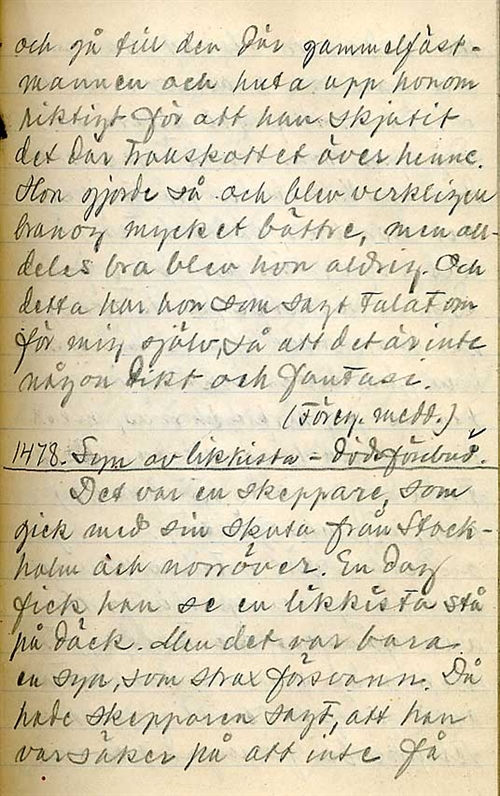 och gå till den där gammelfäst-
mannen och huta upp honom
riktigt för att han skjutit
det där trollskottet över henne.
Hon gjorde så och blev verkligen
bra nog mycket bättre, men all-
deles bra blev hon aldrig. Och
detta har hon som sagt talat om
för mig själv, så att det är inte
någon dikt och fantasi.
(Föreg. medd.)
1478. Syn av likkista - dödsförebud.
Det var en skeppare, som
gick med sin skuta från Stock-
holm och norröver. En dag
fick han se en likkista stå
på däck. Men det var bara
en syn, som strax försvann. Då
hade skepparen sagt, att han
var säker på att inte få